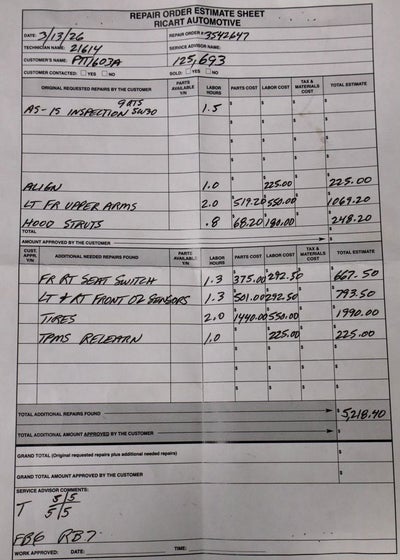 REPAIR ORDER ESTIMATE SHEET
RICART AUTOMOTIVE
DATE: 3/13/26 REPAIR ORDER # 3542647
TECHNICIAN NAME: 21614 SERVICE ADVISOR NAME:
CUSTOMER'S NAME: PTT1603A 125,693
CUSTOMER CONTACTED: YES NO SOLD: YES NO
ORIGINAL REQUESTED REPAIRS BY THE CUSTOMER PARTS AVAILABLE Y/N LABOR HOURS PARTS COST LABOR COST TAX & MATERIALS COST TOTAL ESTIMATE
AS-IS INSPECTION 9 QTS 5W30 1.5 $ $ $ $
ALIGN 1.0 225.00 225.00
LT FR UPPER ARMS 2.0 519.20 550.00 1069.20
HOOD STRUTS .8 68.20 180.00 248.20
TOTAL
AMOUNT APPROVED BY THE CUSTOMER
CUST. APPR. Y/N ADDITIONAL NEEDED REPAIRS FOUND PARTS AVAILABLE Y/N LABOR HOURS PARTS COST LABOR COST TAX & MATERIALS COST TOTAL ESTIMATE
FR RT SEAT SWITCH 1.3 375.00 292.50 667.50
LT & RT FRONT O2 SENSORS 1.3 501.00 292.50 793.50
TIRES 2.0 1440.00 550.00 1990.00
TPMS RELEARN 1.0 225.00 225.00
TOTAL ADDITIONAL REPAIRS FOUND $ 5,218.40
TOTAL ADDITIONAL AMOUNT APPROVED BY THE CUSTOMER $
GRAND TOTAL (Original requested repairs plus additional needed repairs) $
GRAND TOTAL AMOUNT APPROVED BY THE CUSTOMER $
SERVICE ADVISOR COMMENTS:
T 5/5
5/5
FB6 RB7
WORK APPROVED: DATE: TIME: